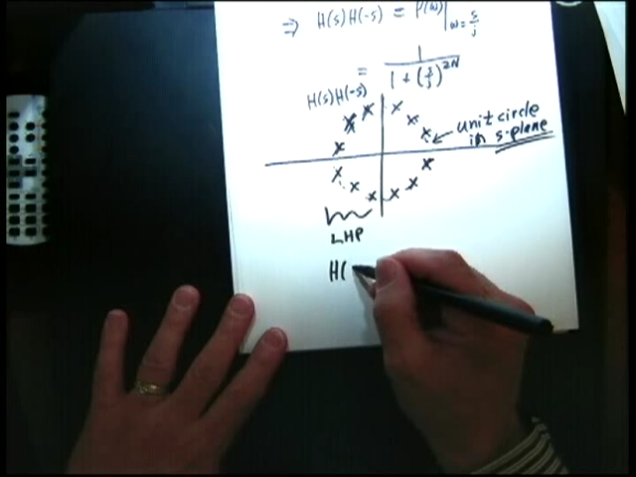 ⇒ H(s)H(-s) = P(ω)|ω=s/j
= 1 / (1 + (s/j)^2N)
H(s)H(-s)
unit circle
in s-plane
LHP
H(